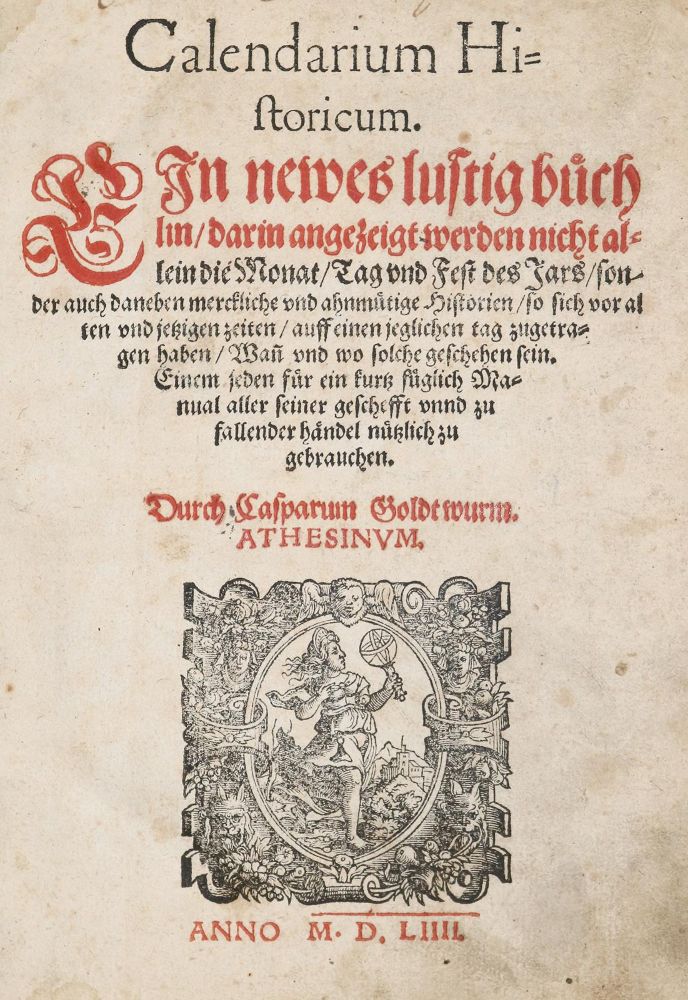 Calendarium Hi=
ſtoricum.
EIn newes luſtig buͤch
lin/ darin angezeigt werden nicht al=
lein die Monat/ Tag vnd Feſt des Jars/ ſon=
der auch daneben merckliche vnd ahnmuͤtige Hiſtorien/ ſo ſich vor al
ten vnd jetzigen zeiten/ auff einen jeglichen tag zugetra=
gen haben/ Wañ vnd wo ſolche geſchehen ſein.
Einem jeden fuͤr ein kurtz fuͤglich Ma=
nual aller ſeiner geſchefft vnnd zu
fallender haͤndel nuͤtzlich zu
gebrauchen.
Durch Caſparum Goldtwurm.
ATHESINVM.
ANNO M. D. LIIII.